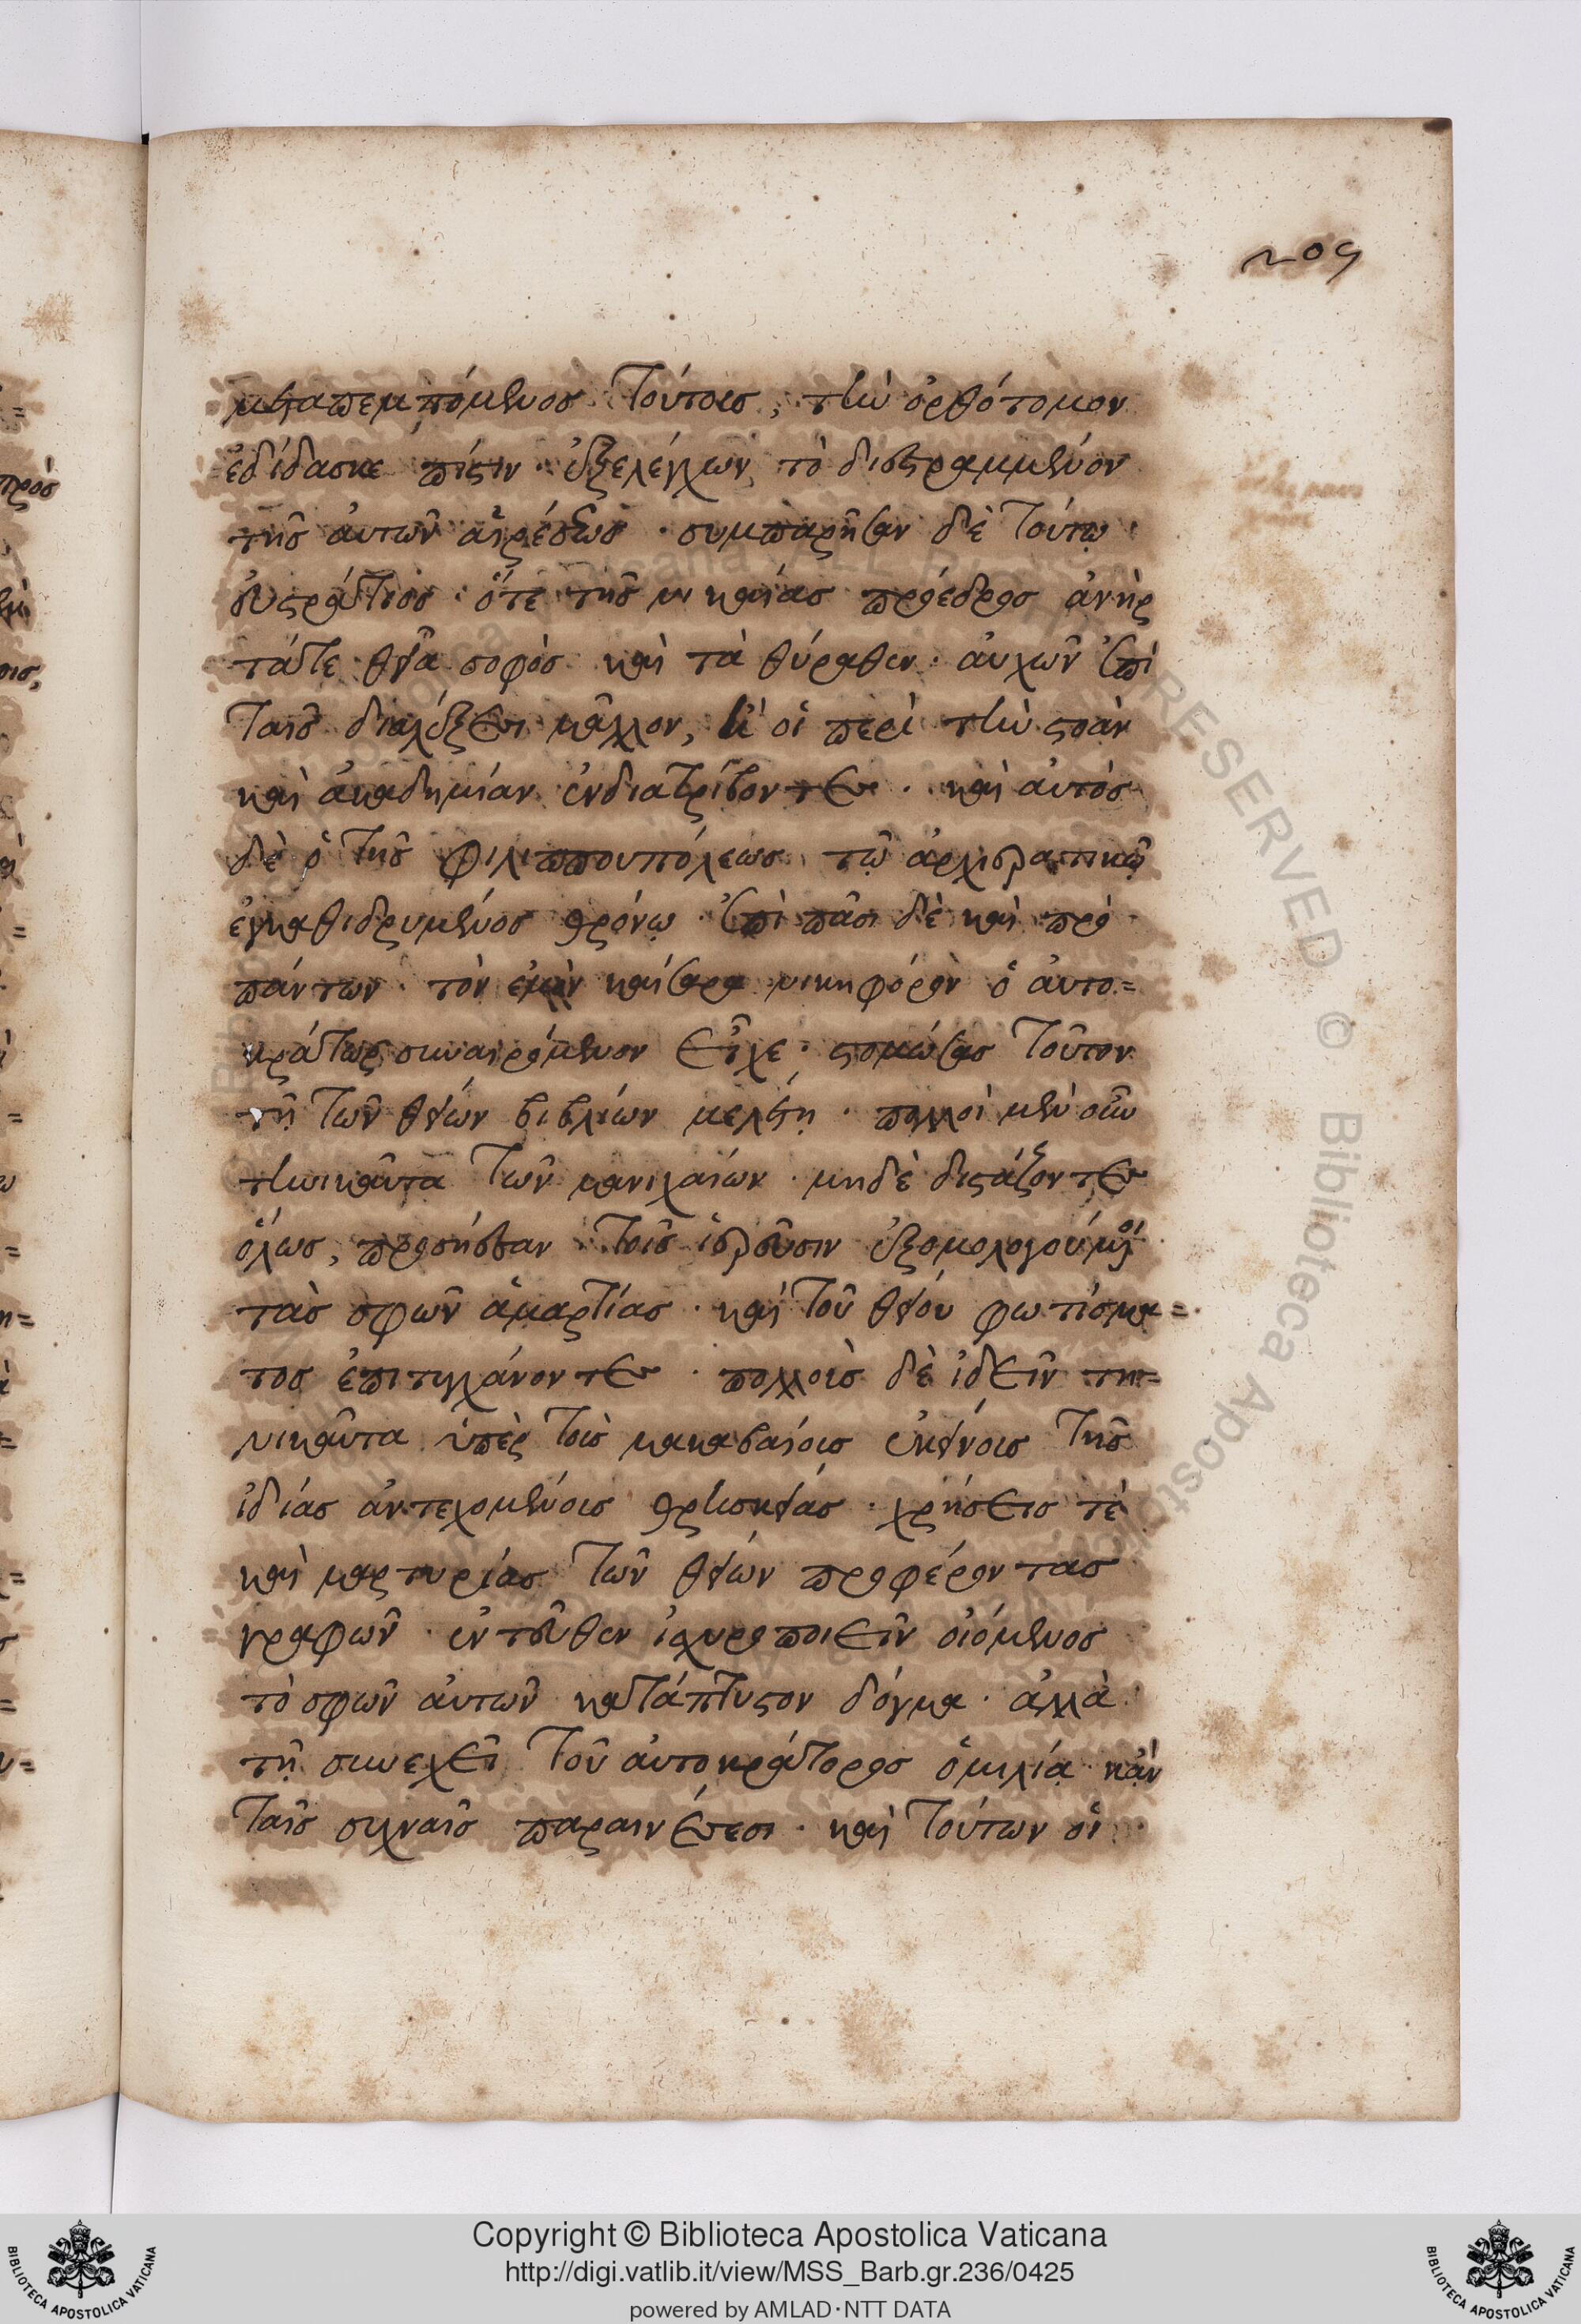 209
μεταπεμπόμενος τούτοις, τὴν ὀρθότομον
ἐδίδασκε πίστιν· ἐξελέγχων τὸ διεστραμμένον
τῆς αὐτῶν αἱρέσεως· συμπαρῆσαν δὲ τούτω
εὐστράτιος· ὅτε τῆς νικαίας πρόεδρος ἀνὴρ
τάτε θεῖα σοφὸς καὶ τὰ θύραθεν· αὐχῶν ἐπὶ
ταῖς διαλέξεσι μᾶλλον, ἢ οἱ περὶ τὴν στοὰν
καὶ ἀκαδημίαν ἐνδιατρίβοντες· καὶ αὐτὸς
δὲ ὁ τῆς φιλιππουπόλεως τῶ ἀρχιερατικῶ
ἐγκαθιδρυμένος θρόνω· ἐπὶ πᾶσι δὲ καὶ πρὸ
πάντων τὸν ἐμὸν καίσαρα νικηφόρον ὁ αὐτο=
κράτωρ συναιρόμενον εἶχε· στομώσας τοῦτον
τῇ τῶν θείων βιβλίων μελέτῃ· πολλοὶ μὲν οὖν
τηνικαῦτα τῶν μανιχαίων μηδὲ διστάζοντες
ὅλως, προσήεσαν τοῖς ἱερεῦσιν ἐξομολογούμενοι
τὰς σφῶν ἁμαρτίας· καὶ τοῦ θείου φωτίσμα=
τος ἐπιτυγχάνοντες· πολλοὺς δὲ ἰδεῖν τη=
νικαῦτα ὑπὲρ τοὺς μακαβαίους ἐκείνους τῆς
ἰδίας ἀντεχομένους θρησκείας· χρήσεις τὲ
καὶ μαρτυρίας τῶν θείων προφέροντας
γραφῶν· ἐντεῦθεν ἰσχυροποιεῖν οἰόμενος
τὸ σφῶν αὐτῶν κατάπτυστον δόγμα· ἀλλὰ
τῇ συνεχεῖ τοῦ αὐτοκράτορος ὁμιλίᾳ κἀν
ταῖς συχναῖς παραινέσεσι· καὶ τούτων οἱ
Copyright © Biblioteca Apostolica Vaticana
http://digi.vatlib.it/view/MSS_Barb.gr.236/0425
powered by AMLAD·NTT DATA